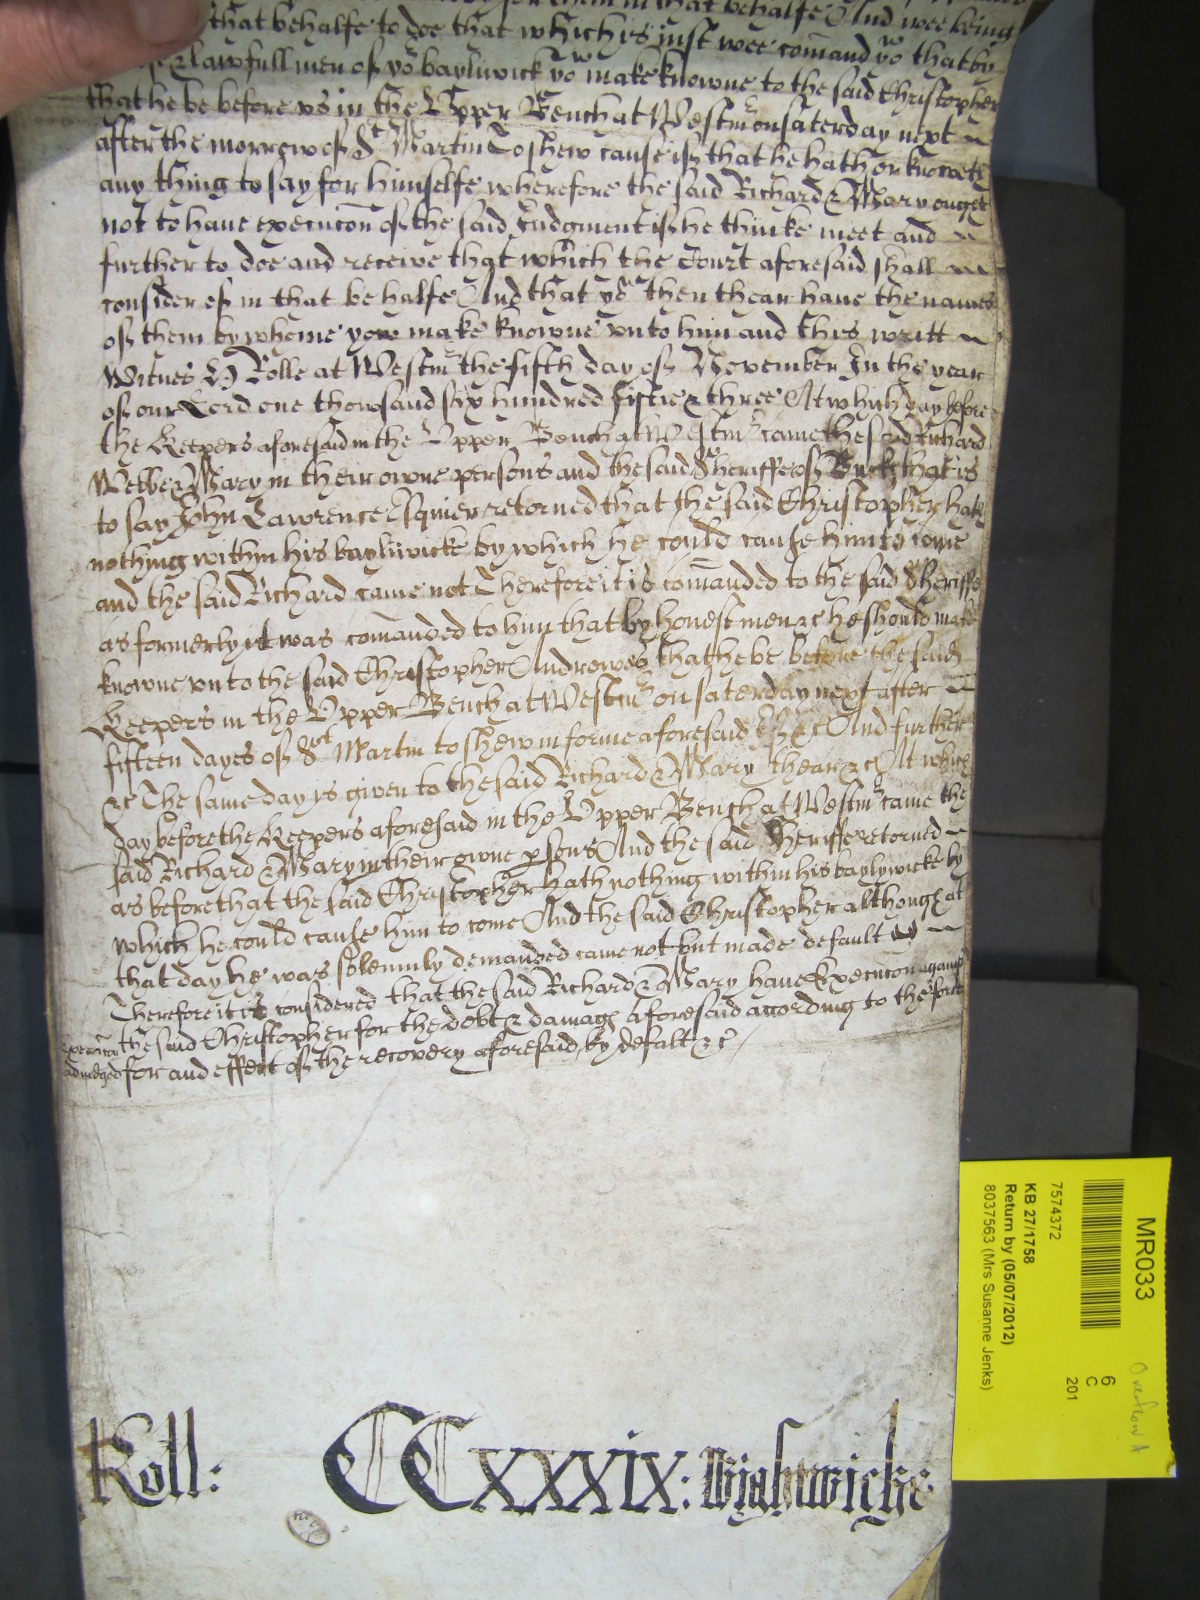 them in that behalfe And wee being
that behalfe to doe that which is just wee comand yo^w that by
lawfull men of yo^r bayliwick yo^w make knowne to the said Christopher
that he be before us in the Upper Bench at Westm^r on Saterday next
after the morrow of S^t Martin To shew cause if that he hath or knoweth
any thing to say for himselfe wherefore the said Richard & Mary ought
not to have execucon of the said Judgment if he thinke meet and
further to doe and receive that which the Court aforesaid shall
consider of in that behalfe And that yo^w then thear have the names
of them by whome yow make knowne unto him and this writt
Witnes H Rolle at Westm^r the fifth day of November In the year
of our Lord one thowsand six hundred fiftie & three At which day before
the Keepers aforesaid in the Upper Bench at Westm^r came the said Richard
Webbe & Mary in their owne persons and the said Sheriffe of Bucks that is
to say John Lawrence Esquier retorned that the said Christopher hath
nothing within his bayliwicke by which he could cause him to come
and the said Richard came not Therefore it is comanded to the said Sheriffe
as formerly it was comanded to him that by honest men &c he should make
knowne unto the said Christopher Androwes that he be before the said
Keepers in the Upper Bench at Westm^r on Saterday next after
fifteen dayes of S^t Martin to shew in forme aforesaid if &c And further
&c The same day is given to the said Richard & Mary thear &c At which
day before the Keepers aforesaid in the Upper Bench at Westm^r came the
said Richard & Mary in their owne psons And the said Sheriffe retorned
as before that the said Christopher hath nothing within his baylywicke by
which he could cause him to come And the said Christopher although at
that day he was solemnly demanded came not but made default
Therefore it is considered that the said Richard & Mary have Execucon against
the said Christopher for the debt & damag^s aforesaid according to the force
for and effect of the recovery aforesaid by defalt &c
Execucon
adiudged
Roll: CCXXXIX: Wightwicke
MR033
7574372
KB 27/1758
Return by (05/07/2012)
8037563 (Mrs Susanne Jenks)
6
C
201
Overflow A